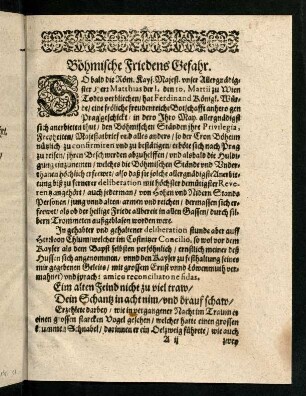 Böhmische Friedens Gefahr.
SObald die Röm. Kays. Majest. vnser Allergnädig-
ster Herr Matthias der I. den 10. Martii zu Wien
Todes verblichen/ hat Ferdinand Königl. Wür-
de/ eine fröliche freudenreiche Botschafft anhero gen
Prag geschickt/ in dero Ihre May. allergnädigst
sich anerbieten thut/ den Böhmischen Ständen ihre Privilegia,
Freyheiten/ Majestatbrief vnd alles anders/ so der Cron Böheim
nützlich zu confirmiren vnd zu bestätigen/ erbött sich nach Prag
zu reisen/ ihren Besitz werden abzuhelffen/ vnd alsbald die Huldi-
gung einzunemen/ welches die Böhmischen Stände vnd Vnder-
thanen höchlich erfrewet/ also daß sie solche allergnädigste Anerbie-
tung biß zu fernerer deliberation mit höchster demütigster Reve-
rentz angehört/ auch jederman/ von Hohen vnd Nidern Stands
Personen/ jung vnnd alten/ armen vnd reichen/ dermassen sich er-
frewet/ als ob der heilige Friede albereit in allen Gassen/ durch sil-
bern Trommeten außgeblasen worden were.
In gehabter vnd gehaltener deliberation stunde aber auff
Hertzog Thlum/ welcher im Costnitzer Concilio, so wol vor dem
Kayser als dem Bapst selbsten persönlich/ ernstlich meines des
Hussen sich angenommen/ vnnd den Kayser zu festhaltung seines
mir gegebenen Geleits/ mit grossem Ernst vnnd Löwenmuth ver-
mahnt/ vnd sprach: amico reconciliato ne fidas.
Eim alten Feind nicht zu viel traw/
Dein Schantz in acht nim/ vnd drauf schaw/
Erzehlete darbey/ wie in vergangener Nacht im Traum er
einen grossen starcken Vogel gesehen/ welcher hatte einen grossen
krummen Schnabel/ darinnen er ein Oelzweig führete/ wie auch
A ij
zwey